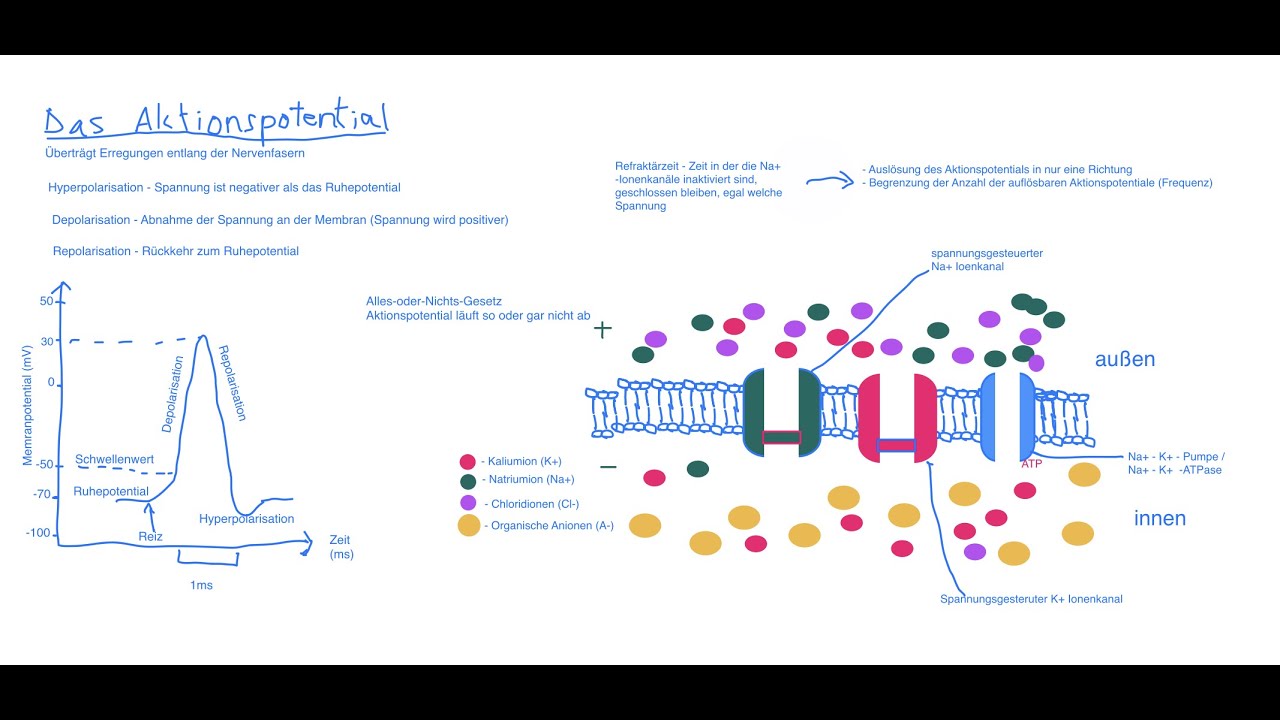 Das Aktionspotential
Überträgt Erregungen entlang der Nervenfasern
Hyperpolarisation - Spannung ist negativer als das Ruhepotential
Depolarisation - Abnahme der Spannung an der Membran (Spannung wird positiver)
Repolarisation - Rückkehr zum Ruhepotential
Refraktärzeit - Zeit in der die Na+
-Ionenkanäle inaktiviert sind,
geschlossen bleiben, egal welche
Spannung
- Auslösung des Aktionspotentials in nur eine Richtung
- Begrenzung der Anzahl der auflösbaren Aktionspotentiale (Frequenz)
Alles-oder-Nichts-Gesetz
Aktionspotential läuft so oder gar nicht ab
Memranpotential (mV)
50
30
0
-50
-70
-100
Schwellenwert
Ruhepotential
Reiz
Depolarisation
Repolarisation
Hyperpolarisation
Zeit
(ms)
1ms
+
−
- Kaliumion (K+)
- Natriumion (Na+)
- Chloridionen (Cl-)
- Organische Anionen (A-)
spannungsgesteuerter
Na+ Ioenkanal
außen
ATP
Na+ - K+ - Pumpe /
Na+ - K+ -ATPase
innen
Spannungsgesteruter K+ Ionenkanal